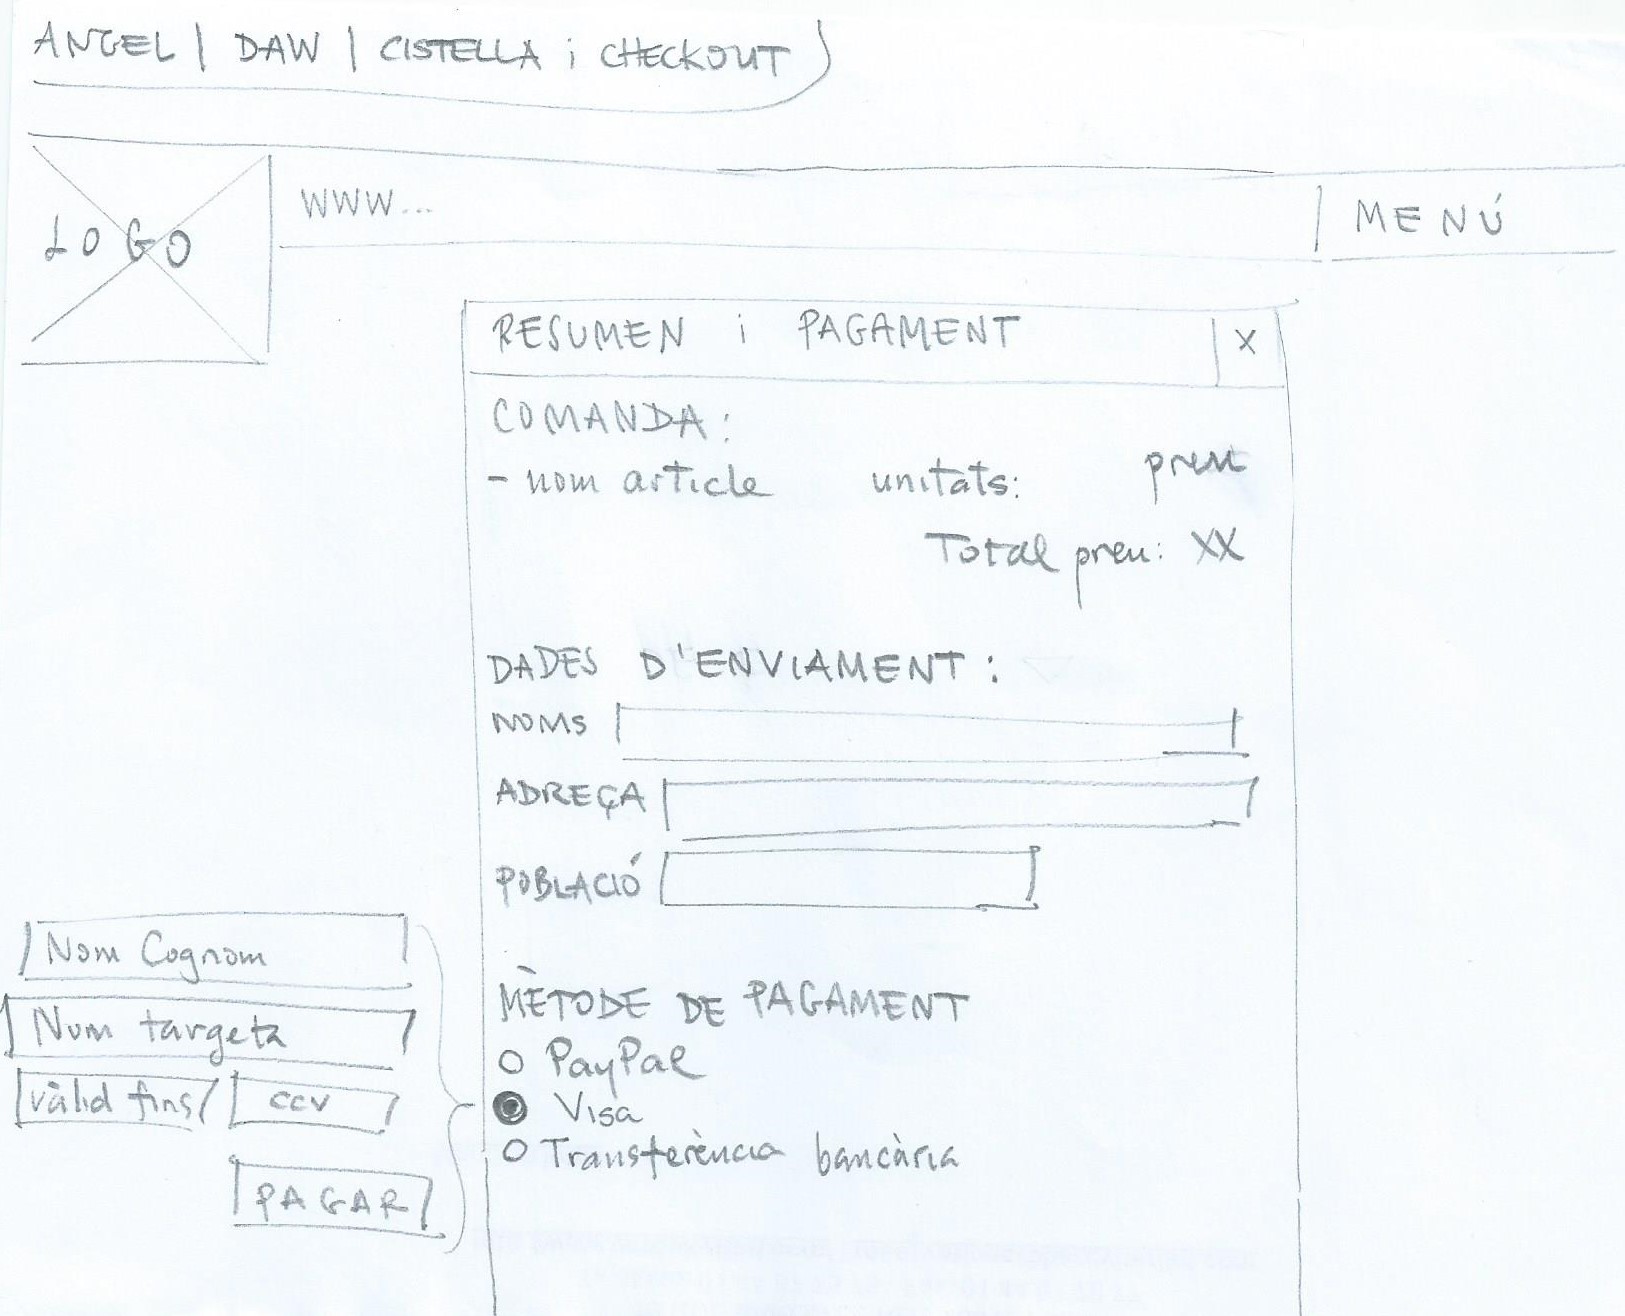 ANGEL | DAW | CISTELLA i CHECKOUT
LOGO
WWW...
MENÚ
RESUMEN i PAGAMENT X
COMANDA:
- nom article unitats: preu
Total preu: XX
DADES D'ENVIAMENT:
NOMS
ADREÇA
POBLACIÓ
MÈTODE DE PAGAMENT
PayPal
Visa
Transferència bancària
Nom Cognom
Num targeta
vàlid fins
ccv
PAGAR